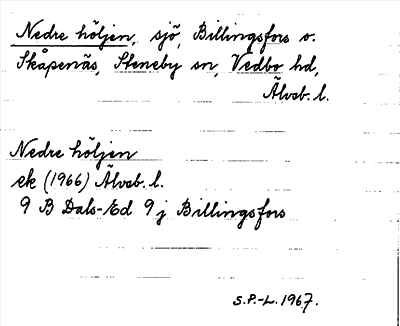 Nedre höljen, sjö, Billingsfors o.
Skåpenäs, Steneby sn, Vedbo hd,
Älvsb. l.
Nedre höljen
ek (1966) Älvsb. l.
9 B Dals-Ed 9 j Billingsfors
S.P.-L. 1967.